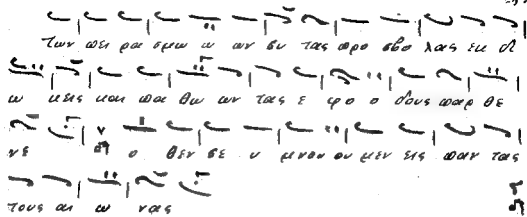 των πει ρα σμω ω ων συ τας προ σβο λας εκ δι
ω κεις και πα θω ων τας ε φο ο δους παρ θε
νε ο θεν σε υ μνου ου μεν εις παν τας
τους αι ω νας